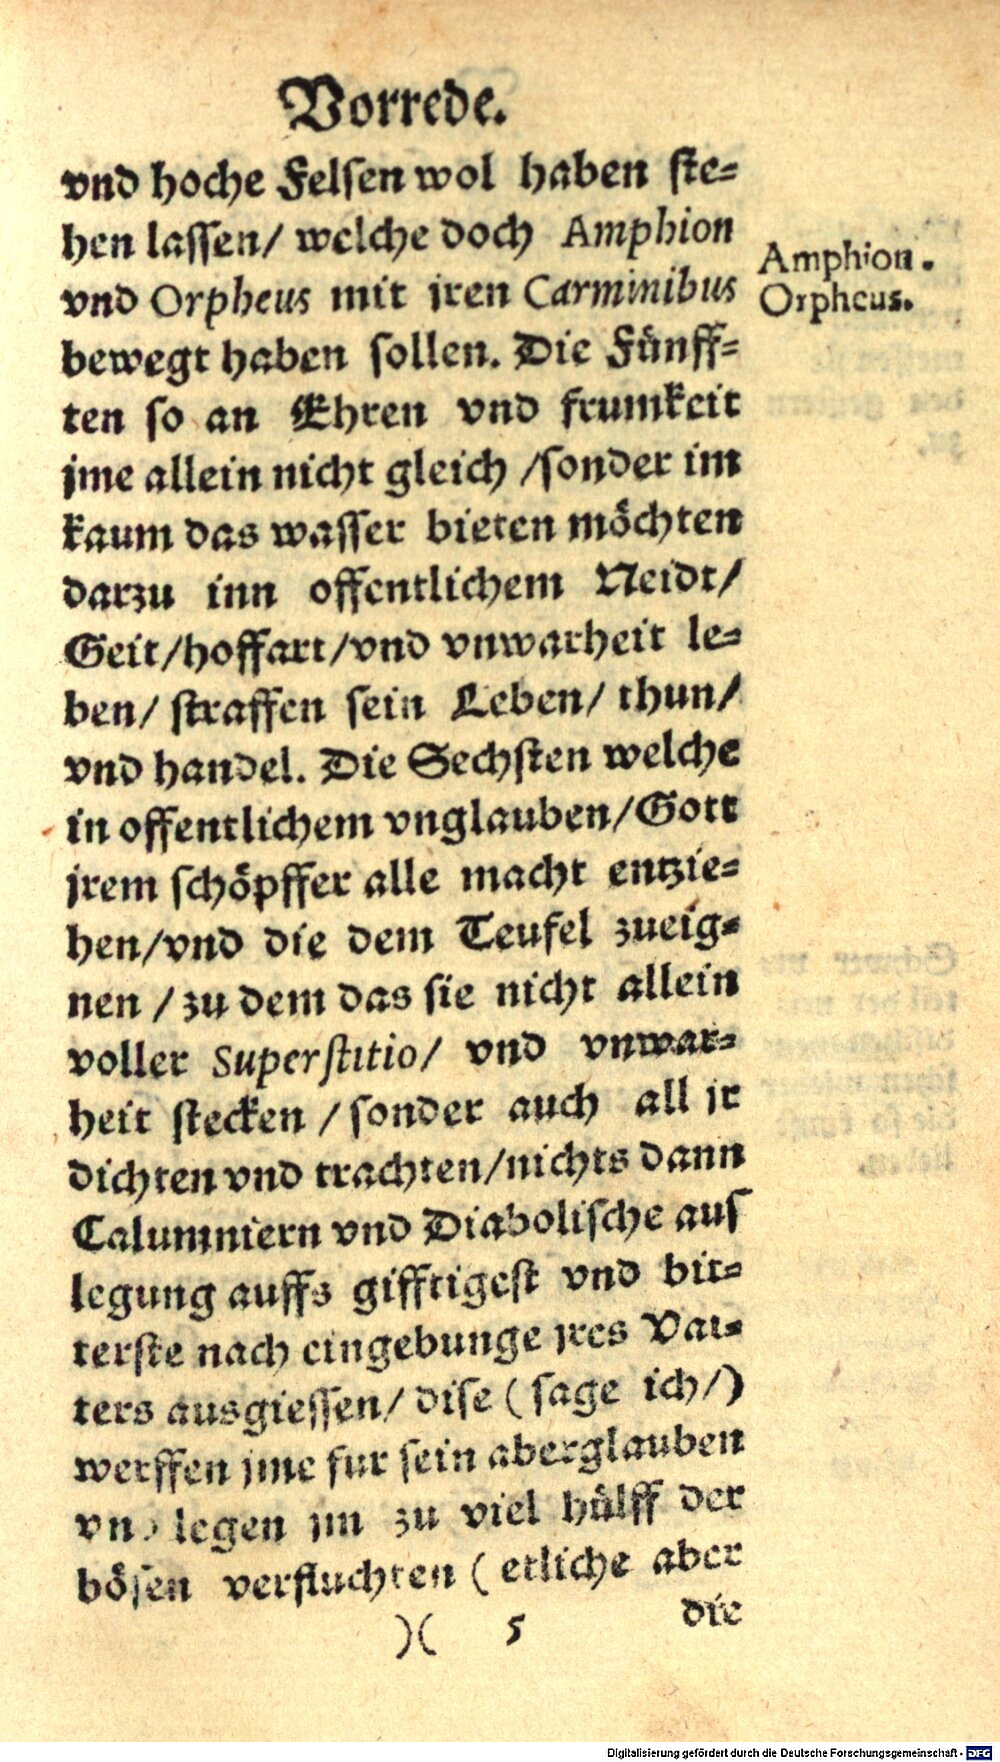 Vorrede.
vnd hoche Felsen wol haben ste=
hen lassen/ welche doch Amphion
vnd Orpheus mit jren Carminibus
bewegt haben sollen. Die Fünff=
ten so an Ehren vnd frumkeit
jme allein nicht gleich /sonder im
kaum das wasser bieten möchten
darzu inn offentlichem Neidt/
Geit/hoffart/vnd vnwarheit le=
ben/ straffen sein Leben/ thun/
vnd handel. Die Sechsten welche
in offentlichem vnglauben/Gott
jrem schöpffer alle macht entzie=
hen/vnd die dem Teufel zueig=
nen / zu dem das sie nicht allein
voller Superstitio/ vnd vnwar=
heit stecken / sonder auch all jr
dichten vnd trachten/nichts dann
Calumniern vnd Diabolische aus
legung auffs gifftigest vnd bit=
terste nach eingebunge jres Vat=
ters ausgiessen/ dise ( sage ich/)
werffen jme fur sein aberglauben
vnd legen jm zu viel hülff der
bösen verfluchten ( etliche aber
)( 5 die
Amphion.
Orpheus.
Digitalisierung gefördert durch die Deutsche Forschungsgemeinschaft - DFG